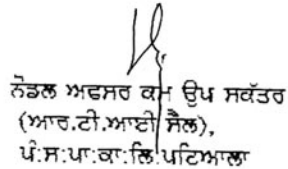 ਨੋਡਲ ਅਫਸਰ ਕਮ ਉਪ ਸਕੱਤਰ
(ਆਰ.ਟੀ.ਆਈ ਸੈਲ),
ਪੰ:ਸ:ਪਾ:ਕਾ:ਲਿ:ਪਟਿਆਲਾ